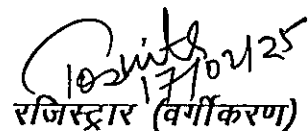 17/02/25
रजिस्ट्रार (वर्गीकरण)